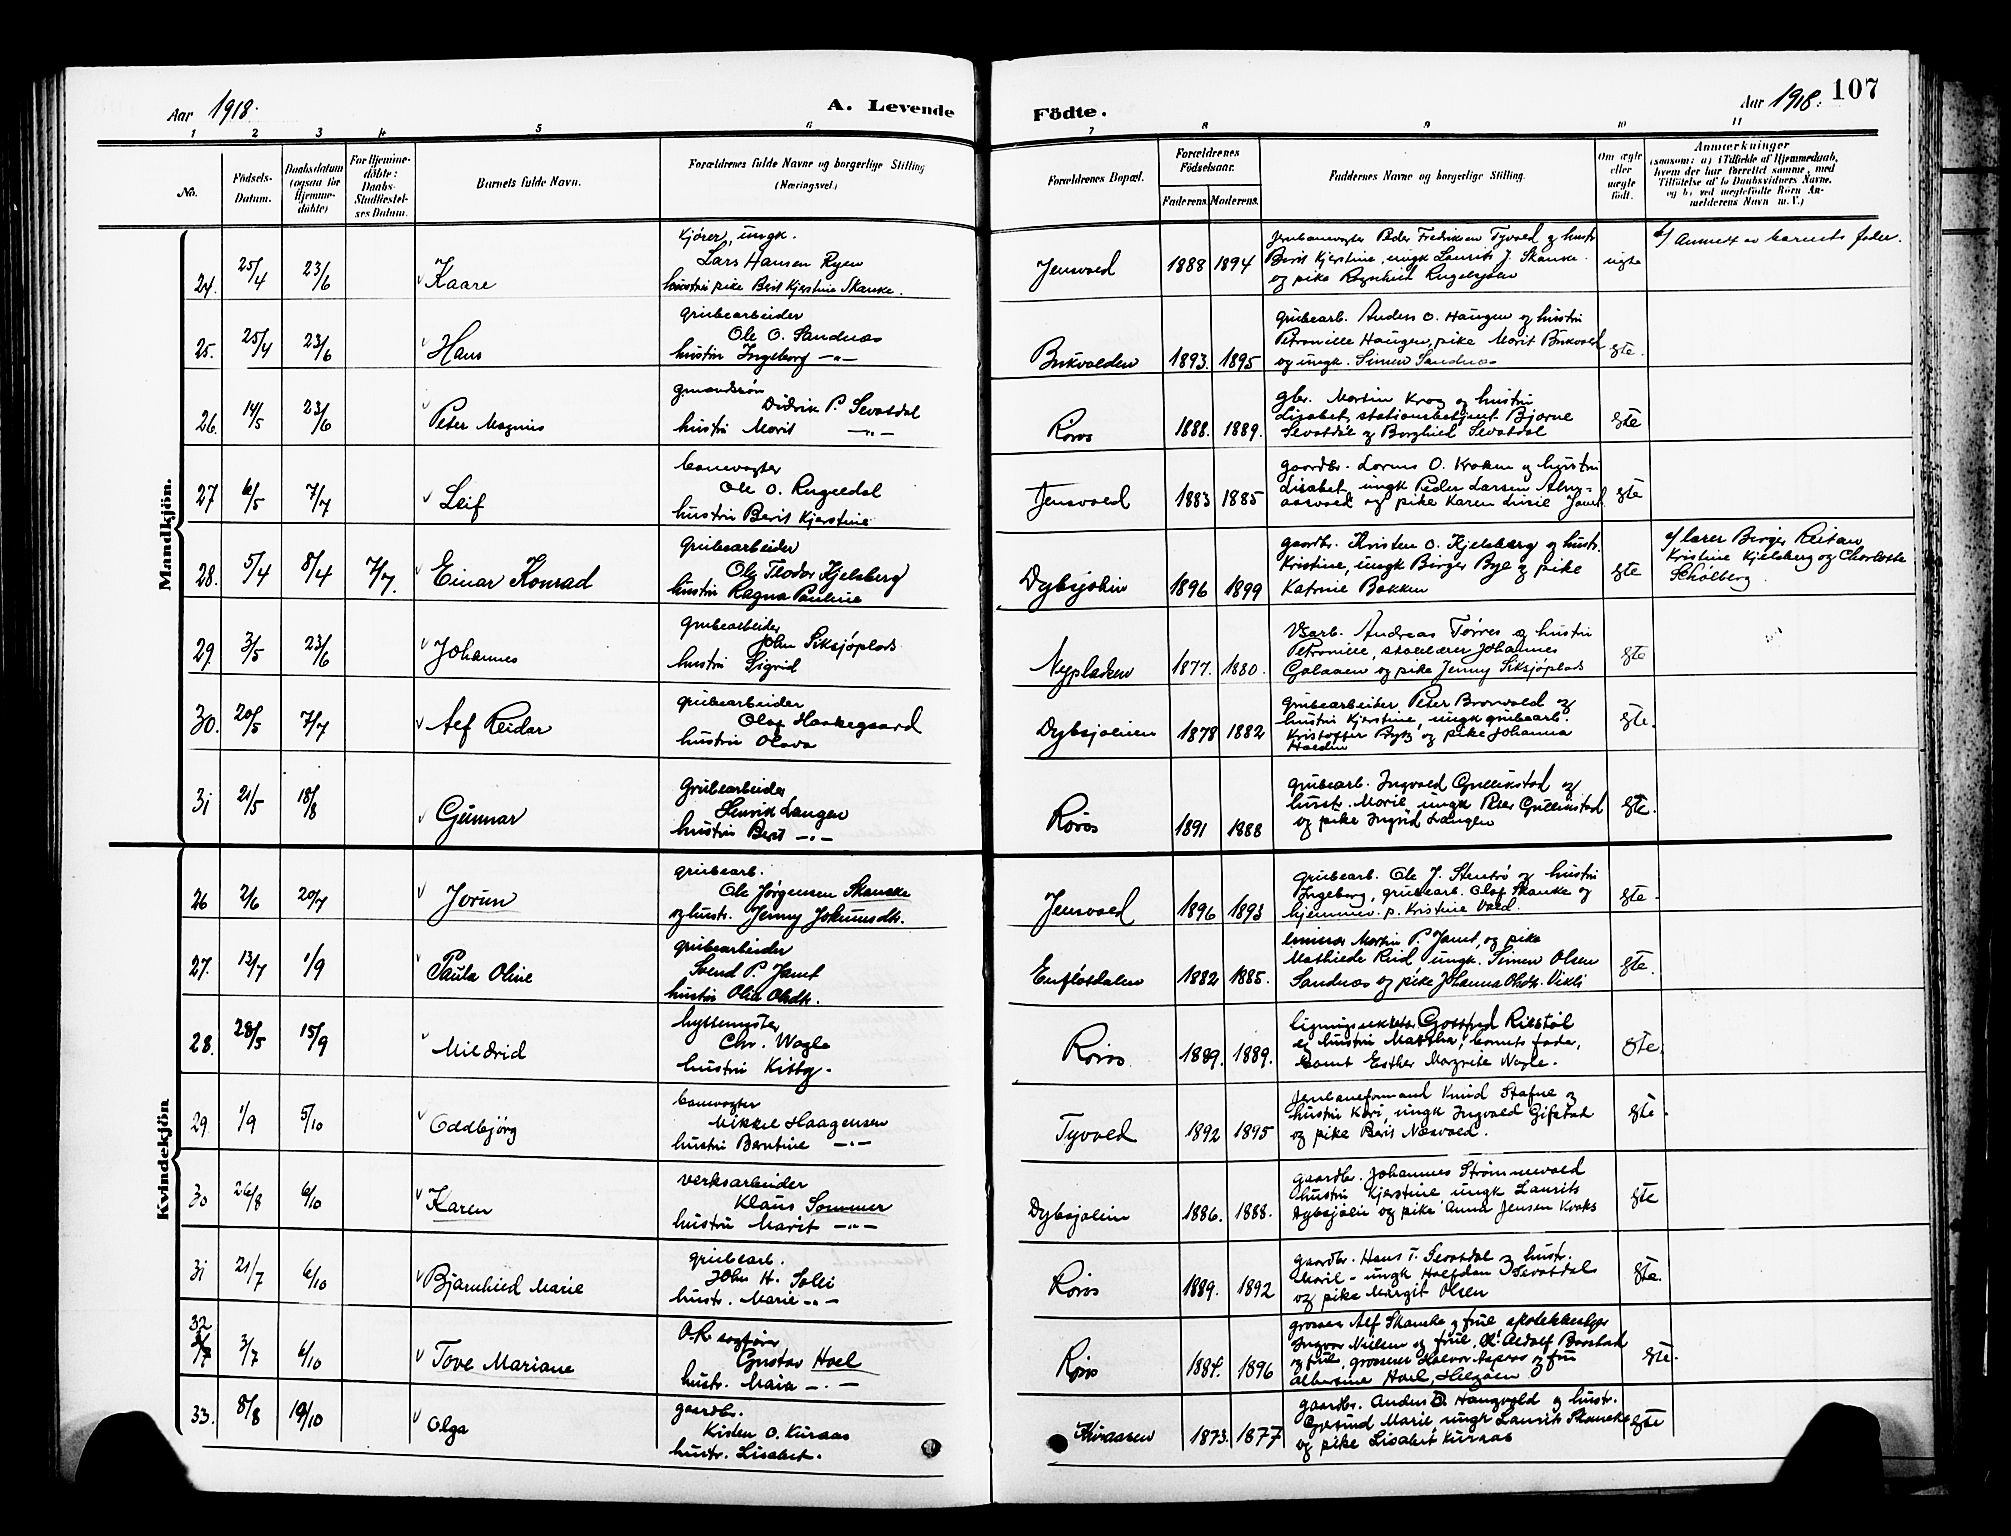 Aar 1918.
A. Levende
Födte.
Aar 1918.
107
1 2 3 4 5 6
7 8 9 10 11
No.
Födsels-
Datum.
Daabsdatum
(ogsaa for
Hjemme-
döbte)
For Hjemme-
döbte:
Daabs-
Stadfæstel-
ses Datum.
Barnets fulde Navn.
Forældrenes fulde Navne og borgerlige Stilling
(Næringsvei)
Forældrenes Bopæl.
Forældrenes
Födselsaar.
Faderens. Moderens.
Faddernes Navne og borgerlige Stilling.
Om ægte
eller
uægte
födt.
Anmærkninger
(saasom: a) i Tilfælde af Hjemmedaab,
hvem der har forrettet samme, med
Tilföielse af to Daabsvidners Navne,
og b) ved uægtefödte Börn An-
melderens Navn m. V.)
Mandkjön.
24. 25/4 23/6 Kaare
Kjører, ungk.
Lars Hansen Ryen
pike Berit Kjerstine Skanke.
Jensvold 1888 1894
Jernbanevogter Peder Fredriksen Tyvold og hustr.
Berit Kjerstine, ungk Laurits J. Skanke
og pike Ragnhild Engelsjoen
uegte
Anmeldt av barnets fader.
25. 25/4 23/6 Hans
grubearbeider
Ole O. Sandnæs
hustru Ingeborg -"-
Bukvolden 1893. 1895
grubearb. Anders O. Haugen og hustru
Petronille Haugen, pike Marit Bukvold
og ungk. Simen Sandnæs
egte.
26. 14/5 23/6 Peter Magnus
gmandssøn
Didrik P. Sevatdal
hustru Marit -"-
Røros 1888. 1889.
gbr. Martin Krog og hustru
Lisabet, stationsbetjent Bjarne
Sevatdal og Borghild Sevatdal
egte
27 6/5 7/7 Leif
banevogter
Ole O. Engeldal
hustru Berit Kjerstine
Jensvold 1883 1885
gaardbr. Lorns O. Kroken og hustru
Lisabet, ungk Peder Larsen Alm-
aasvold og pike Karen Lusie Jamt
egte
28. 5/4 8/4 7/7. Einar Konrad
Grubearbeider
Ole Teodor Kjelsberg
hustru Ragna Pauline
Dybsjølien 1896 1899
gaardbr. Kristen O. Kjelsberg og hustr.
Kristine, ungk Birger Bye og pike
Katrine Bakken
egte
a/ lærer Birger Reitan
Kristine Kjelsberg og Charlotte
Schølberg
29. 3/5 23/6 Johannes
Grubearbeider
John Siksjøplads
hustru Sigrid
Nypladsen 1877. 1880.
Vsarb. Andreas Tørres og hustru
Petronille, skolelærer Johannes
Galaaen og pike Jenny Siksjøplads
egte
30. 20/5 7/7 Alf Reidar
grubearbeider
Olaf Haakegaard
hustru Olava
Dybsjølien 1878 1882
Grubearbeiter Peter Brovold og
hustru Kjerstine, ungk grubearb.
Kristoffer Ryg og pike Johanna
Holden
egte.
31 21/5 18/8 Gunnar
Grubearbeider
Henrik Langen
hustru Berit -"-
Røros 1891 1888
grubearb. Ingvald Gullikstad og
hustr. Marie, ungk Peter Gullikstad
og pike Ingrid Langen
egte.
Kvindekjön
26 2/6 20/7 Jorun
grubearb.
Ole Jørgensen Skanske
og hustr. Jenny Johannsdtr.
Jensvold 1896 1893
grubearb. Ole J. Stentrø og hustru
Ingeborg, grubearb. Olaf Skanke og
hjemmev. p. Kristine Vold
egte.
27. 13/7 1/9 Paula Oline
grubearbeider
Svend P. Jamt
hustru Olia Olsdtr.
Enflotdalen 1882 1885.
Martin P. Jamt, og pike
Mathilde Reid ungk. Simen Olsen
Sandnæs og pike Johanna Olsdtr. Vikli
egte.
28. 28/5 15/9 Mildrid
hyttemester
Chr. Wagle
hustru Kitty.
Røros 1889. 1889.
ligningssekretær Gottfred Rilstøl
og hustru Martha, barnets fader,
samt Esther Margrete Wagle.
egte.
29 1/9 5/10 Oddbjørg
banevogter
Mikkel Haagensen
hustru Berntine -"-
Tyvold 1892 1895
Jernbaneformand Knud Stafne og
hustru Kari, ungk Ingvald Gifstad
og pike Berit Næsvold.
egte.
30 26/8 6/10 Karen
verksarbeider
Klaus Sommer
hustru Marit -"-
Dybsjølien 1886. 1888.
gaardbr. Johannes Strømmevold
hustru Kjerstine, ungk Laurits
Dybsjølie og pike Anna Jensen Kvaks
egte
31 21/7 6/10 Bjarnhild Marie
grubearb.
John H. Solli
hustr. Marie -"-
Røros 1889. 1892
gaardbr. Hans T. Sevatdal og hustr.
Marit - ungk Halfdan Sevatdal
og pike Margit Olsen
egte.
32 3/7 6/10 Tove Mariane
O.R. sagfører
Gustav Hoel
hustr. Maia -"-
Røros 1884. 1896
grosserer Alf Skanke og frue apotekbestyr
Ingvar Nilsen og frue, Adolf Borstad
og frue, grosserer Halvor Aspaas og fru
Albertine Hoel, Helgøen
egte.
33. 8/8 19/10 Olga
gaardbr.
Kisten O. Kuraas
hustr. Lisabet.
Kuraasen 1873. 1877
gaardbr. Anders D. Haugvold og hustr.
Gjesund Marie ungk Laurits Skanske
og pike Lisabet Kuraas
egte